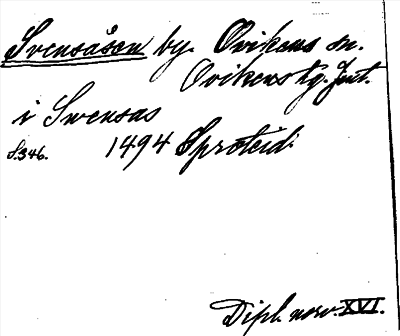 Svensåsen by. Ovikens sn.
Ovikens tg. Jmt.
i Swensas
S.346. 1494 Sproteid.
Dipl. norv. XVI.